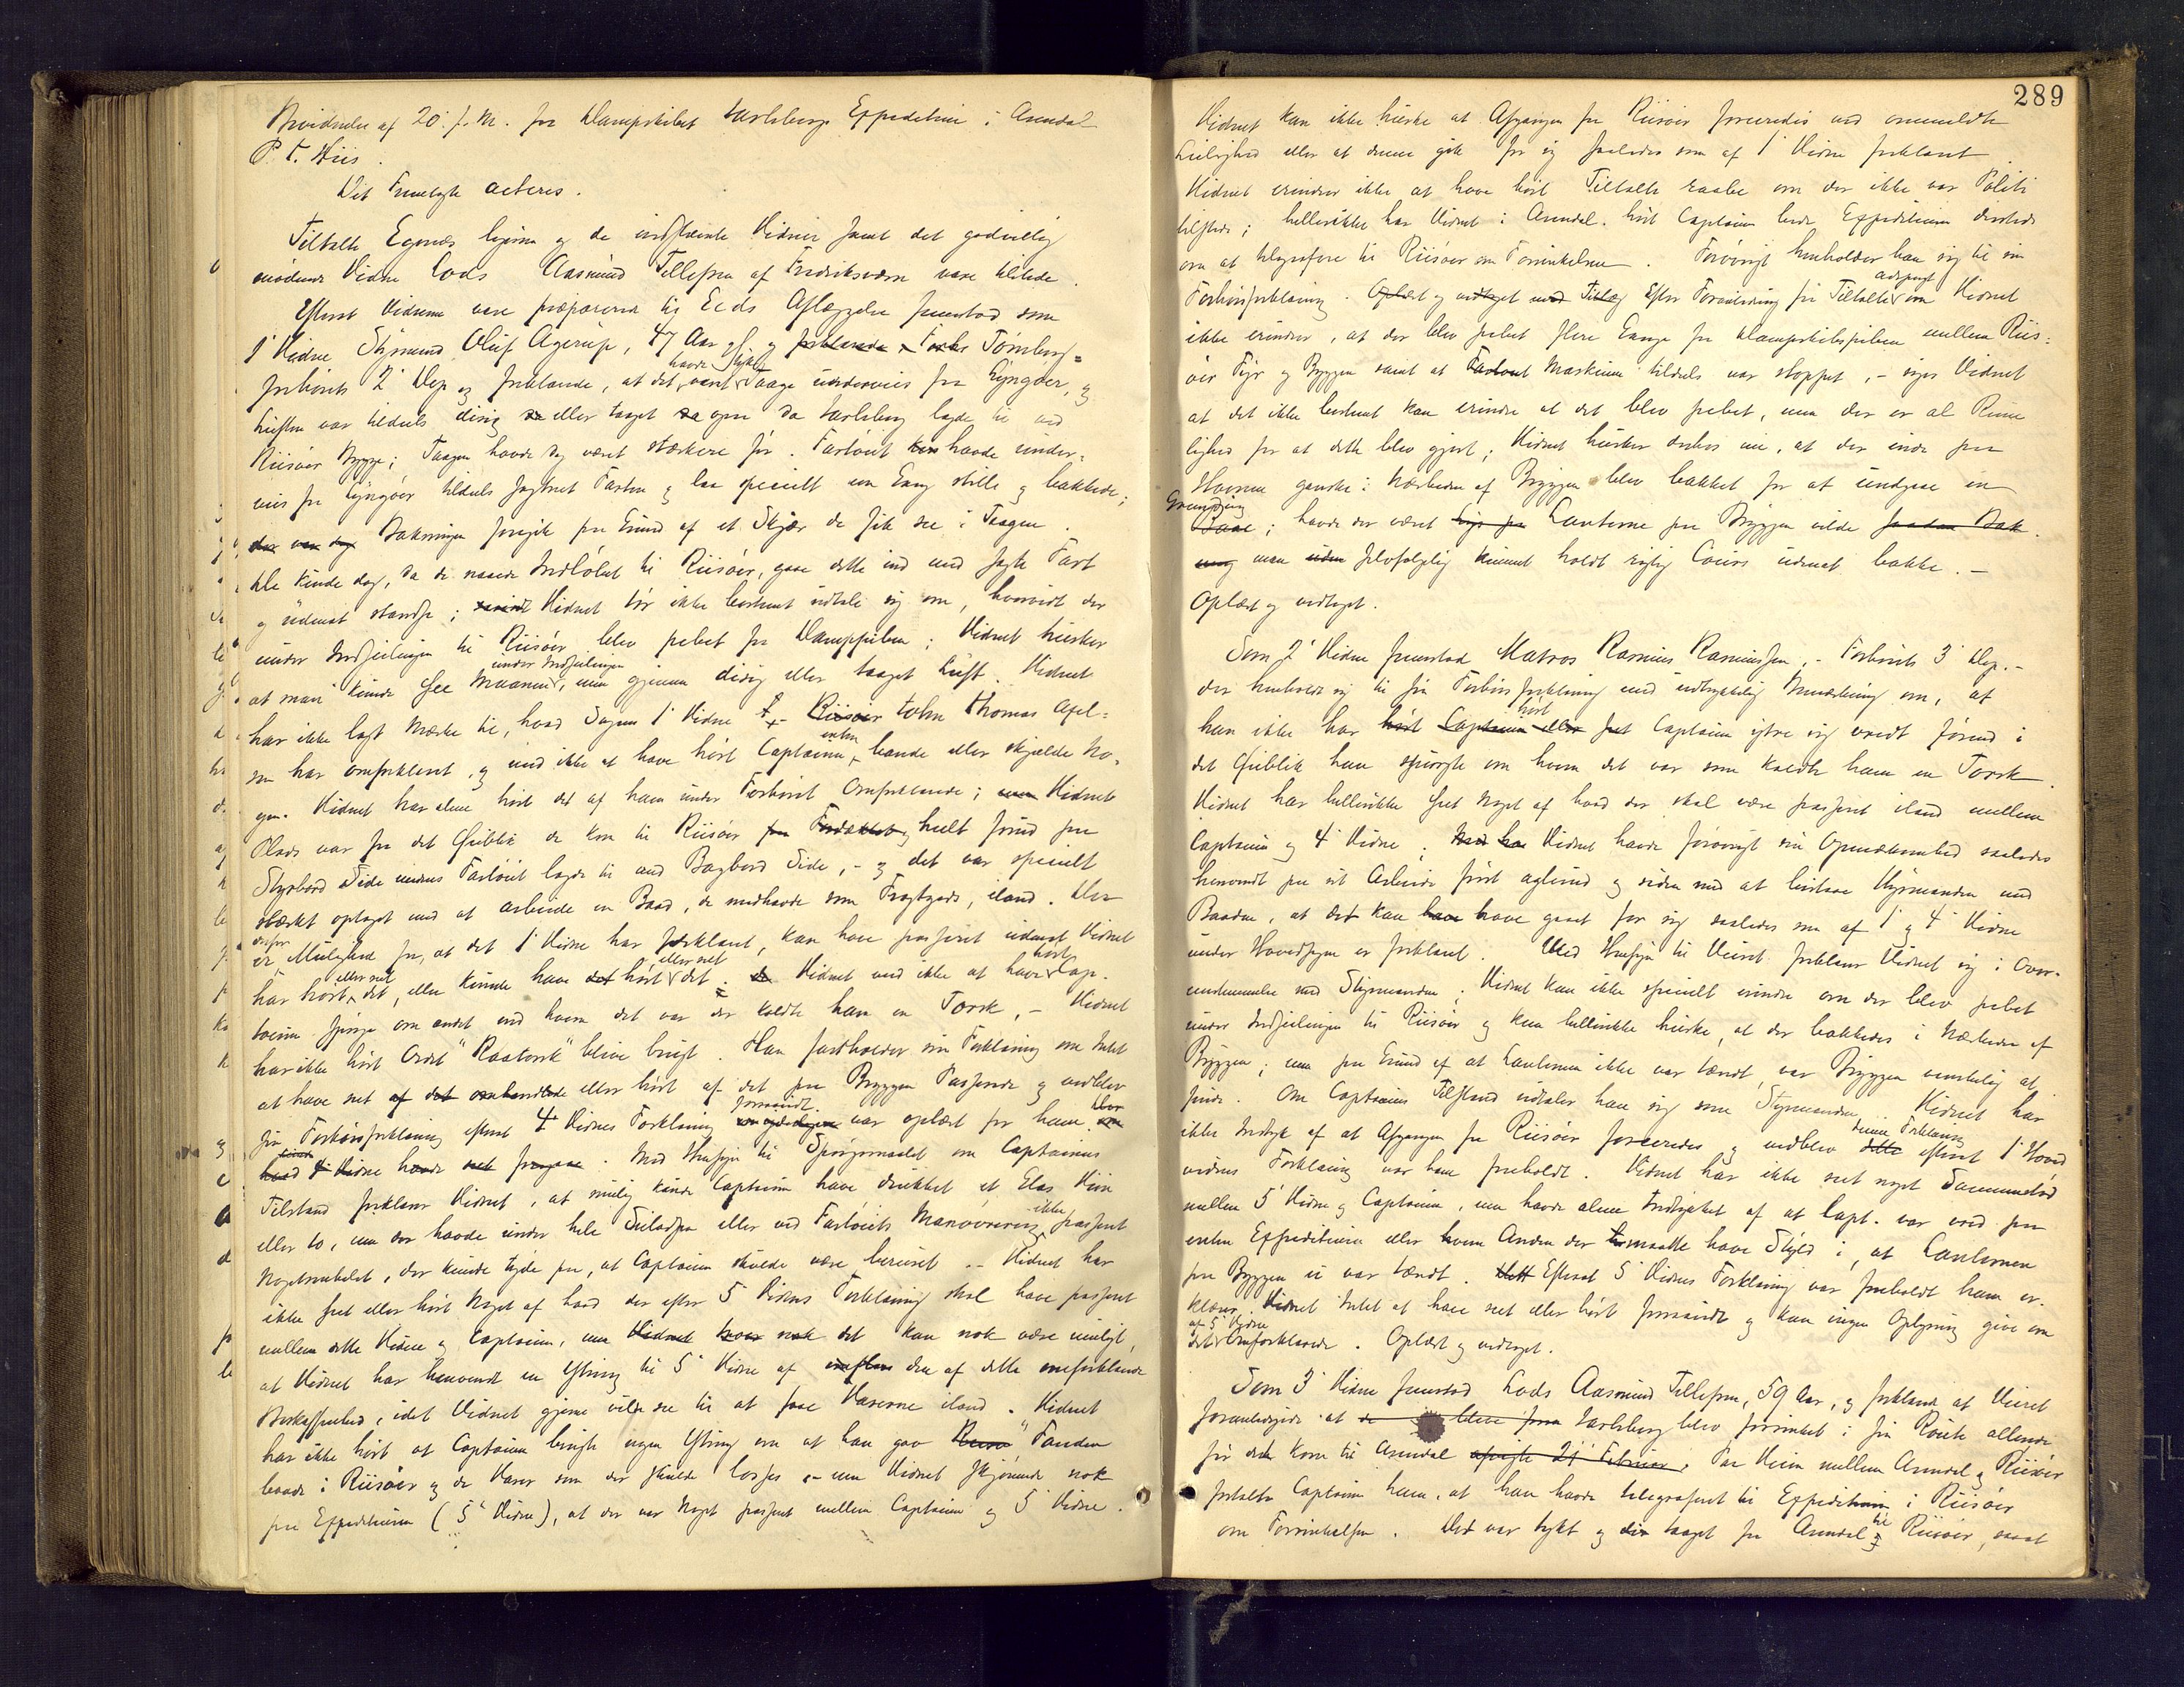 Bevidnelse af 20. f. M. fra Dampskibet Jarlsbergs Expedition i Arendal
P. T. Hiis.
Det Fremlagte acteres.
Tiltalte Egenæs ligesom og de indstævnte Vidner samt det godvillig
mødende Vidne Lods Aasmund Tellefsen af Fredriksværn vare tilstede.
Efterat Vidnerne vare præparerede til Eeds Aflæggelse fremstod som
1' Vidne Styrmand Oluf Agerup, 47 Aar gl. og forklarede
Forhørets 2' Dep og forklarede, at det havde været tyk Taage underveis fra Lyngøer, og
Luften var tildels disig eller taaget ogsaa da Jarlsberg lagde til ved
Riisøer Brygge; Taagen havde dog været stærkere før. Fartøiet havde under-
veis fra Lyngøer tildels sagtnet Farten og laa specielt een Gang stille og bakkede;
Bakningen foregik paa Grund af et Skjær de fik see i Taagen.
De kunde dog, da de naaede Indløbet til Riisøer, gaae dette ind med sagte Fart
og udenat standse; Vidnet tør ikke bestemt udtale sig om, hvorvidt der
under Indseilingen til Riisøer blev pebet fra Damppiben; Vidnet husker
at man kunde see Maanen under Indseilingen, men gjennem disig eller taaget Luft. Vidnet
har ikke lagt Mærke til, hvad Sagens 1' Vidne John Thomas Axel-
sen har omforklaret, og veed ikke at have hørt Captainen enten bande eller skjælde No-
gen. Vidnet har alene hørt det af ham under Forhøret Omforklarede; Vidnets
Plads var fra det Øieblik de kom til Riisøer heelt forud paa
Styrbord Side medens Fartøiet lagde til med Bagbord Side, – og det var specielt
stærkt optaget med at arbeide en Baad, de medhavde som Fragtgods, iland. Der
er derfor Mulighed for, at det 1' Vidne har forklaret, kan have passeret udenat Vidnet
har hørt eller seet det, eller kunde have hørt eller seet det. Vidnet veed ikke at have hørt Cap-
tainen spørge om andet end hvem det var der kaldte ham en Torsk, – Vidnet
har ikke hørt Ordet "Raatorsk" blive brugt. Han fastholder sin Forklaring om Intet
at have seet eller hørt af det paa Bryggen Passerede og vedblev
sin Forhørsforklaring efterat 4' Vidnes Forklaring forsaavidt var oplæst for ham.
Med Hensyn til Spørgsmaalet om Captainens
Tilstand forklarer Vidnet, at mulig kunde Captainen have drukket et Glas Viin
eller to, men der havde under hele Seiladsen eller ved Fartøiets Manøvrering ikke passeret
Nogetsomhelst, der kunde tyde paa, at Captainen skulde være beruset. – Vidnet har
ikke seet eller hørt Noget af hvad der efter 5' Vidnes Forklaring skal have passeret
mellem dette Vidne og Captainen, men det kan nok være muligt,
at Vidnet har henvendt en Ytring til 5' Vidne af den af dette omforklarede
Beskaffenhed, idet Vidnet gjerne vilde see til at faae Varerne iland. Vidnet
har ikke hørt at Captainen brugte nogen Ytring om at han gav "Fanden
baade i Riisøer og de Varer som der skulde losses – men Vidnet skjønnede nok
paa Expeditøren (5' Vidne), at der var Noget passeret mellem Captainen og 5' Vidne.
289
Vidnet kan ikke huske at Afgangen fra Riisøer forceredes ved omme­ldte
Leilighed eller at denne gik for sig saaledes som af 1' Vidne forklaret.
Vidnet erindrer ikke at have hørt Tiltalte raabe om der ikke var Politi
tilstede; hellerikke har Vidnet i Arendal hørt Captainen bede Expeditionen dersteds
om at telegrafere til Riisøer om Forsinkelsen. Forøvrigt henholder han sig til sin
Forhørsforklaring. Oplæst og vedtaget Efter Foranledning fra Tiltalte adspurgt om Vidnet
ikke erindrer, at der blev pebet flere Gange fra Dampskibspiben mellem Riis-
øer Fyr og Bryggen samt at Maskinen tildels var stoppet, – siger Vidnet
at det ikke bestemt kan erindre at det blev pebet, men der er al Rime-
lighed for at dette blev gjort; Vidnet husker derhos nu, at der inde paa
Havnen ganske i Nærheden af Bryggen blev bakket for at undgaae en
Grunding; havde der været Lanterne paa Bryggen vilde
man selvfølgelig kunnet holdt rigtig Cours udenat bakke. –
Oplæst og vedtaget.
Som 2' Vidne fremstod Matros Rasmus Rasmussen, – Forhørets 3' Dep. –
der henholdt sig til sin Forhørsforklaring med udtrykkelig Bemærkning om, at
han ikke har hørt Captainen ytre sig vredt førend i
det Øieblik han spurgte om hvem det var som kaldte ham en Torsk.
Vidnet har hellerikke seet Noget af hvad der skal være passeret iland mellem
Captainen og 4' Vidne. Vidnet havde forøvrigt sin Opmærksomhed saaledes
henvendt paa sit Arbeide først agterud og siden med at bistaae Styrmanden med
Baaden, at det kan have gaaet for sig saaledes som af 1' og 4' Vidne
under Hovedsagen er forklaret. Med Hensyn til Veiret forklarer Vidnet sig i Over-
eensstemmelse med Styrmanden. Vidnet kan ikke specielt erindre om der blev pebet
under Indseilingen til Riisøer og kan hellerikke huske, at der bakkedes i Nærheden af
Bryggen; men paa Grund af at Lanternen ikke var tændt, var Bryggen vanskelig at
finde. Om Captainens Tilstand udtaler han sig som Styrmanden. Vidnet har
ikke Indtryk af at Afgangen fra Riisøer forceredes og vedblev denne Forklaring efterat 1' Hoved-
vidnes Forklaring var ham foreholdt. Vidnet har ikke seet noget Sammenstød
mellem 5' Vidne og Captainen, men havde alene Indtrykket af at Capt. var vred paa
enten Expeditionen eller hvem Anden der maatte have Skyld i, at Lanternen
paa Bryggen ei var tændt. Efterat 5' Vidnes Forklaring var foreholdt ham er-
klærer Vidnet Intet at have seet eller hørt forsaavidt og kan ingen Oplysning give om
det af 5' Vidne Omforklarede. Oplæst og vedtaget.
Som 3' Vidne fremstod Lods Aasmund Tellefsen, 59 Aar, og forklarede at Veiret
foranledigede at Jarlsberg blev forsinket i sin Route allerede
før den kom til Arendal afvigte 21' Februar. Paa Veien mellem Arendal og Riisøer
fortalte Captainen ham, at han havde telegraferet til Expeditionen i Riisøer
om Forsinkelsen. Det var tykt og taaget fra Arendal til Riisøer, saaat